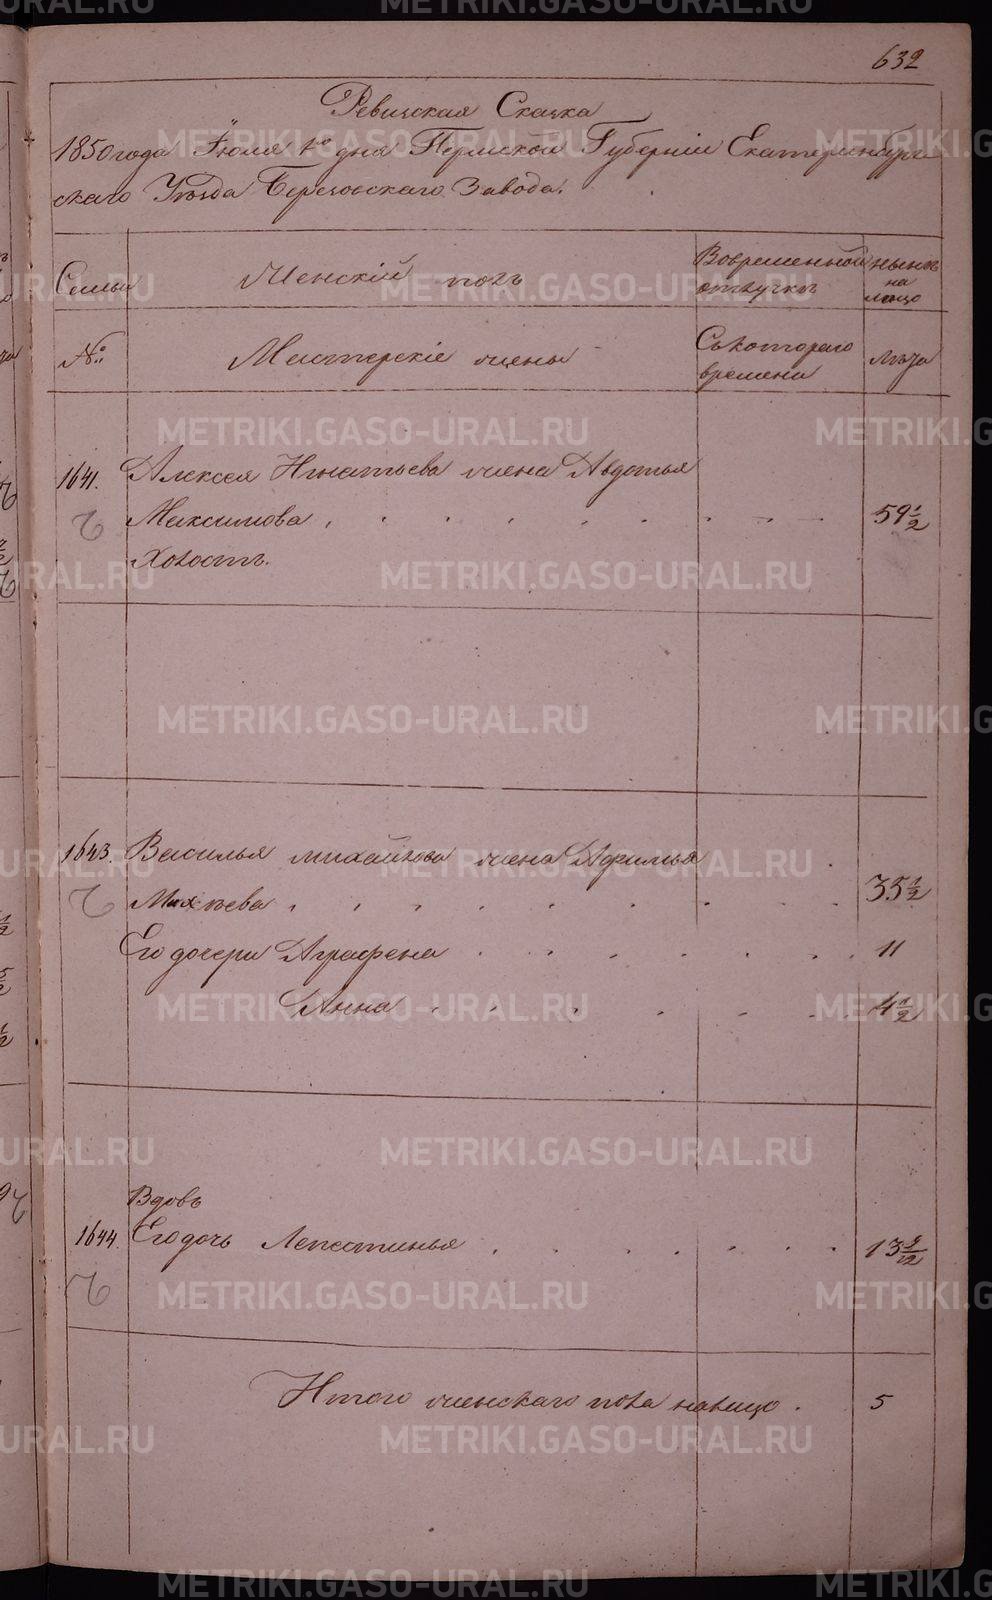 632
Ревижская Скаска
1850 года Іюля 1го дня Пермской Губерніи Екатеринбург
скаго Уѣзда Березовскаго Завода.
Семьи
Женскій полъ
Вовременной отлучкѣ
нынѣ на лицо
№:
Мастерскіе жены
Съкотораго времени
лѣта
1641. Алексея Игнатьева жена Авдотья
Максимова 59 1/2
Холостъ.
1643. Василья михайлова жена Афимья
Михѣева 35 1/2
Его дочери Аграфена 11
Анна 4 1/2
Вдовъ
1644. Его дочь Лепестинья 13
Итого женскаго пола налицо . 5
METRIKI.GASO-URAL.RU